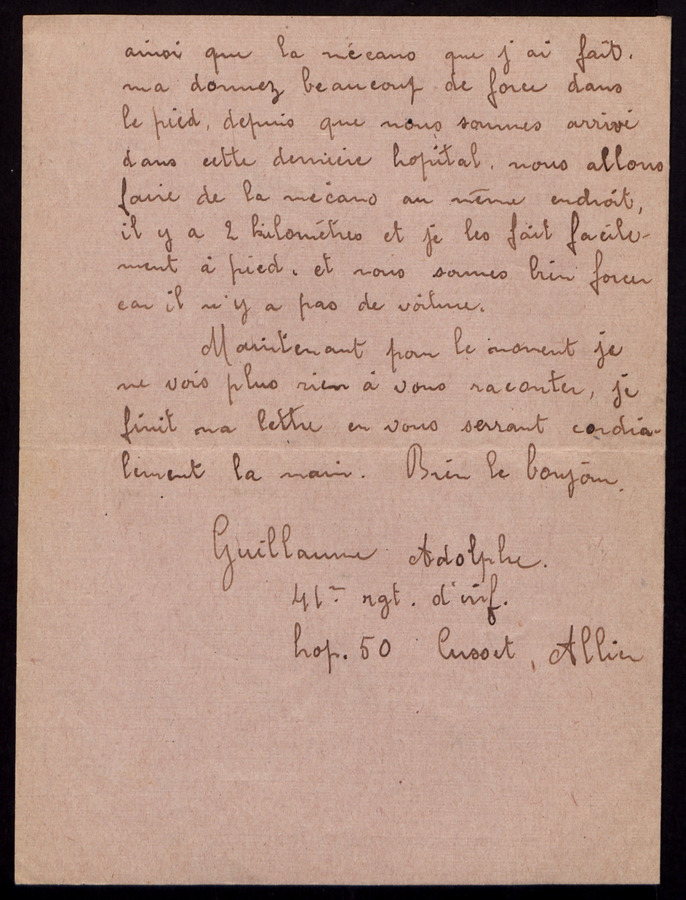 ainsi que la mécano que j ai fait.
ma donnez beaucoup de force dans
le pied, depuis que nous sommes arrivé
dans cette dernière hopital. nous allons
faire de la mécano au même endroit,
il y a 2 kilomètres et je les fait facile-
ment à pied. et nous sommes bien forcer
car il n'y a pas de voiture.
Maintenant pour le moment je
ne vois plus rien à vous raconter, je
finit ma lettre en vous serrant cordia-
lement la main. Bien le bonjour.
Guillaume Adolphe.
41e rgt. d'inf.
hop. 50 Cusset, Allier